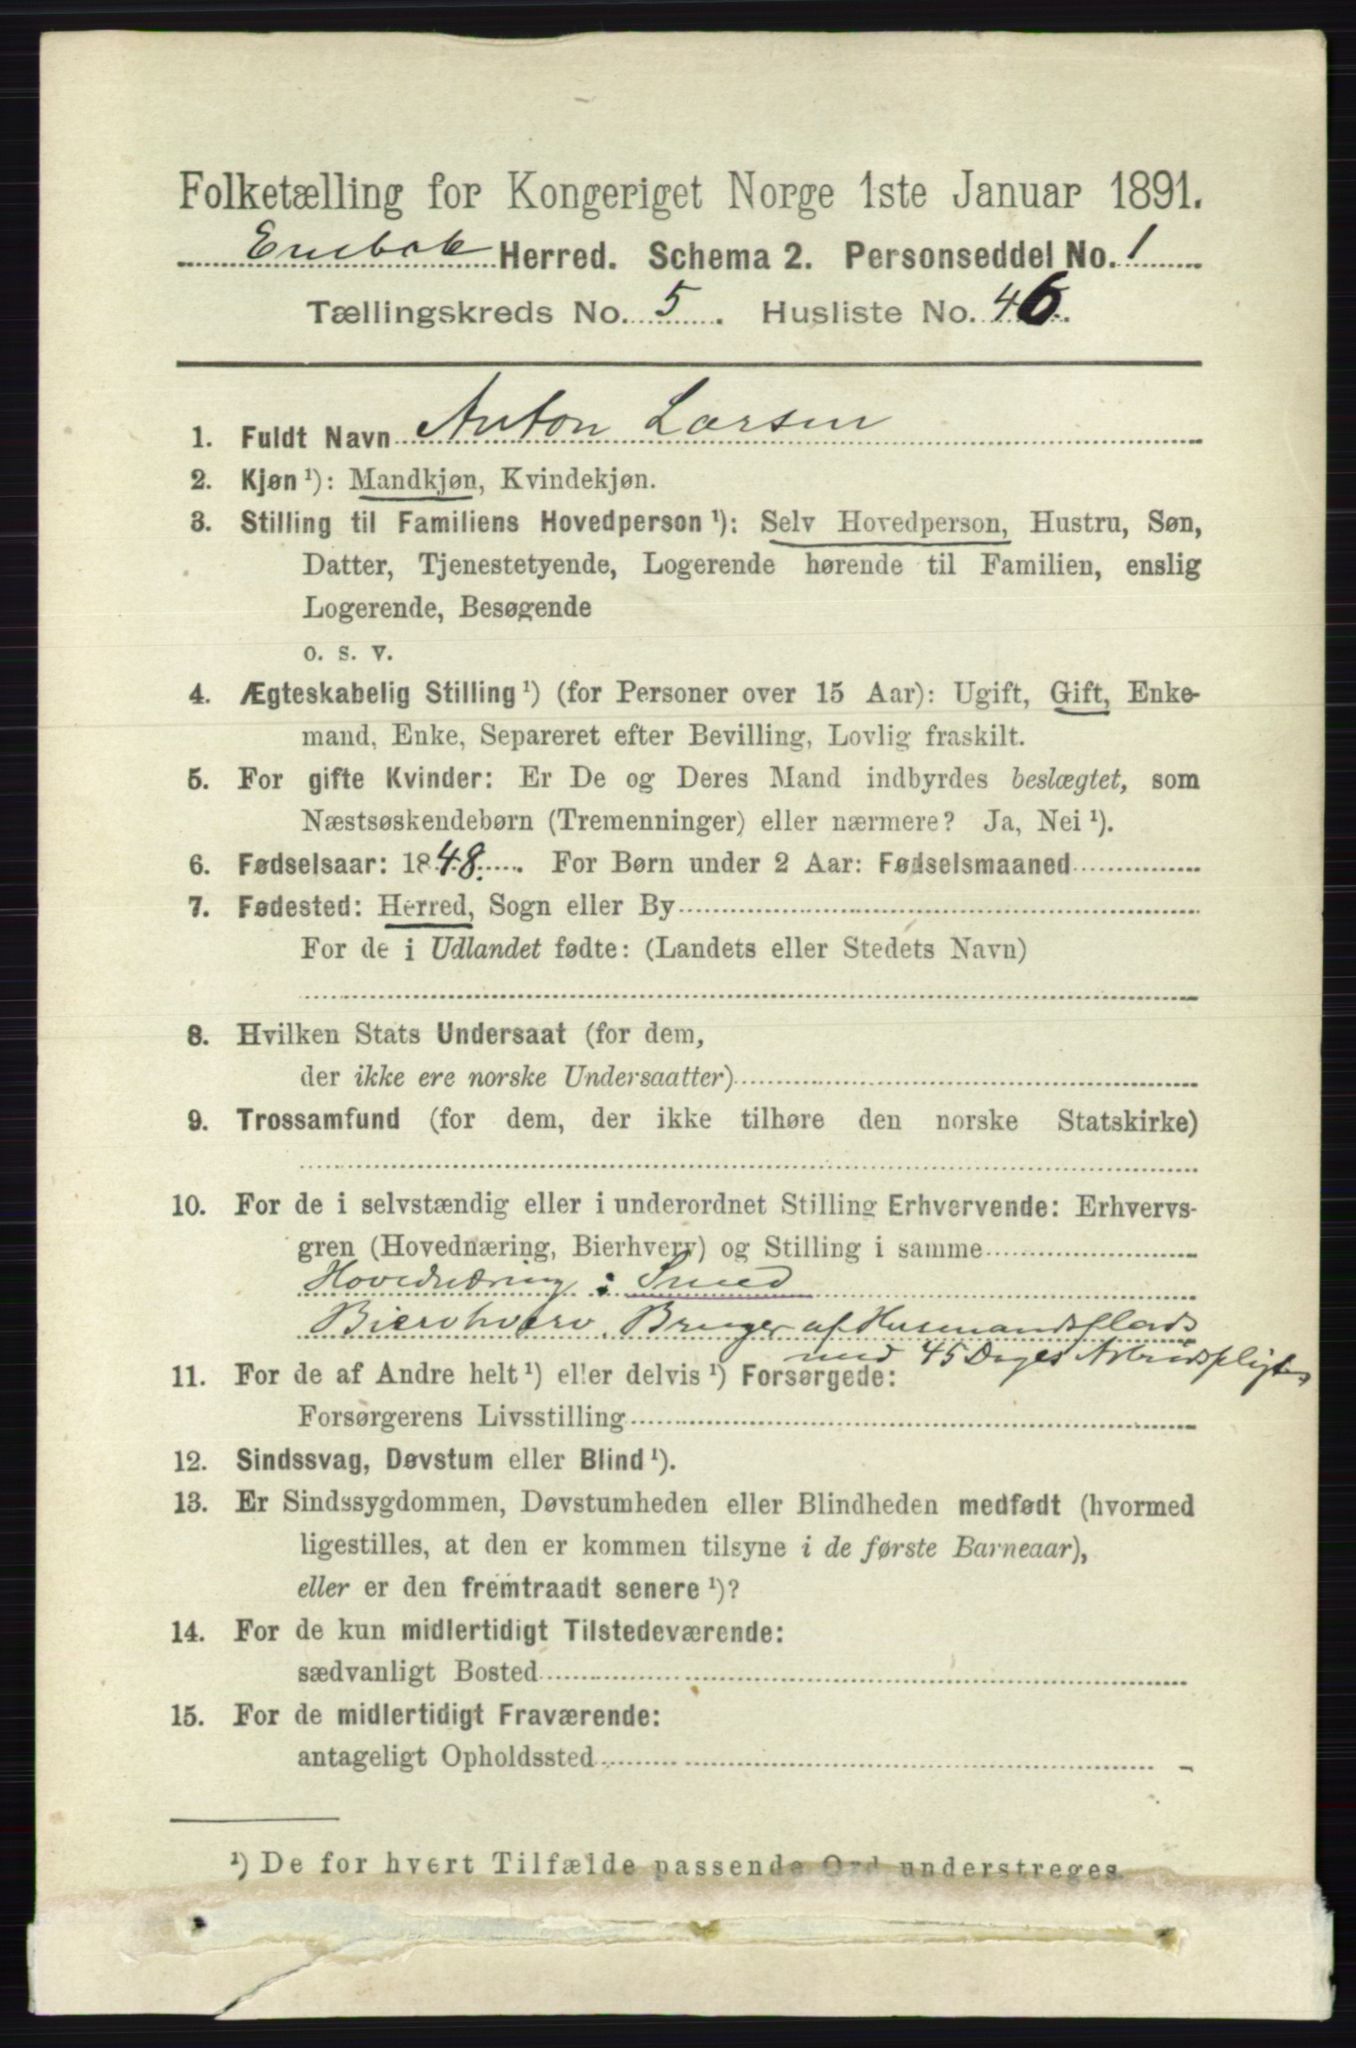 Folketælling for Kongeriget Norge 1ste Januar 1891.
Enebak Herred. Schema 2. Personseddel No. 1
Tællingskreds No. 5. Husliste No. 46.
1. Fuldt Navn Anton Larsen
2. Kjøn ¹): Mandkjøn, Kvindekjøn.
3. Stilling til Familiens Hovedperson ¹): Selv Hovedperson, Hustru, Søn,
Datter, Tjenestetyende, Logerende hørende til Familien, enslig
Logerende, Besøgende
o. s. v.
4. Ægteskabelig Stilling ¹) (for Personer over 15 Aar): Ugift, Gift, Enke-
mand, Enke, Separeret efter Bevilling, Lovlig fraskilt.
5. For gifte Kvinder: Er De og Deres Mand indbyrdes beslægtet, som
Næstsøskendebørn (Tremenninger) eller nærmere? Ja, Nei ¹).
6. Fødselsaar: 1848. For Børn under 2 Aar: Fødselsmaaned
7. Fødested: Herred, Sogn eller By
For de i Udlandet fødte: (Landets eller Stedets Navn)
8. Hvilken Stats Undersaat (for dem,
der ikke ere norske Undersaatter)
9. Trossamfund (for dem, der ikke tilhøre den norske Statskirke)
10. For de i selvstændig eller i underordnet Stilling Erhvervende: Erhvervs-
gren (Hovednæring, Bierhverv) og Stilling i samme
Hovednæring: Smed
Bierhverv. Bruger af Husmandsplads
med 45 Dages Arbeidspligt
11. For de af Andre helt ¹) eller delvis ¹) Forsørgede:
Forsørgerens Livsstilling
12. Sindssvag, Døvstum eller Blind ¹).
13. Er Sindssygdommen, Døvstumheden eller Blindheden medfødt (hvormed
ligestilles, at den er kommen tilsyne i de første Barneaar),
eller er den fremtraadt senere ¹)?
14. For de kun midlertidigt Tilstedeværende:
sædvanligt Bosted
15. For de midlertidigt Fraværende:
antageligt Opholdssted
¹) De for hvert Tilfælde passende Ord understreges.